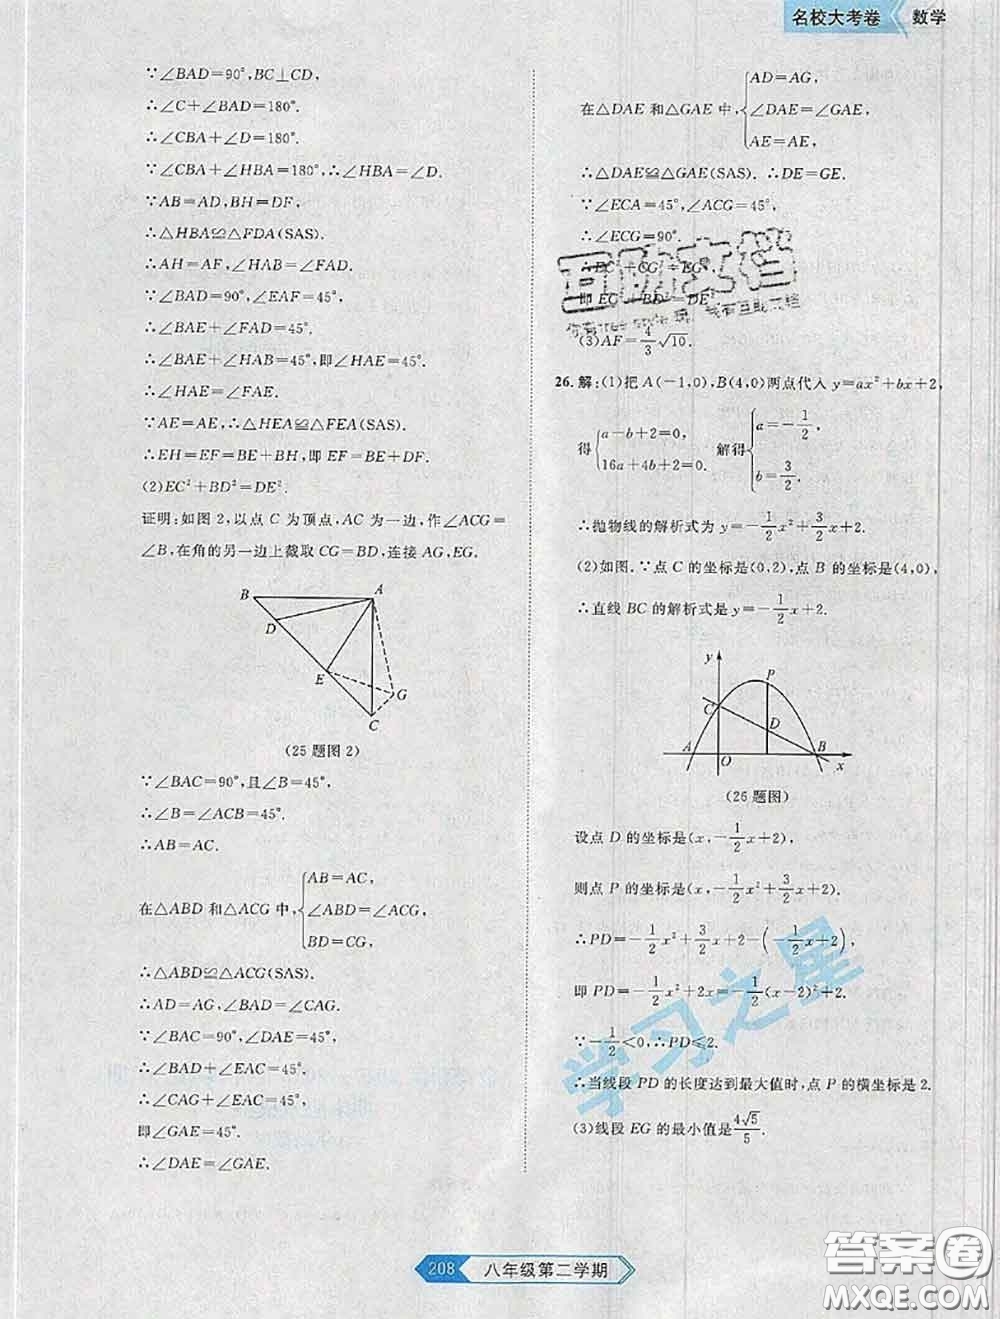 名校大考卷 数学
∵∠BAD=90°,BC⊥CD,
∴∠C+∠BAD=180°.
∴∠CBA+∠D=180°.
∵∠CBA+∠HBA=180°,∴∠HBA=∠D.
∵AB=AD,BH=DF,
∴△HBA≌△FDA(SAS).
∴AH=AF,∠HAB=∠FAD.
∵∠BAD=90°,∠EAF=45°,
∴∠BAE+∠FAD=45°.
∴∠BAE+∠HAB=45°,即∠HAE=45°.
∴∠HAE=∠FAE.
∵AE=AE,∴△HEA≌△FEA(SAS).
∴EH=EF=BE+BH,即 EF=BE+DF.
(2)EC²+BD²=DE².
证明:如图 2,以点 C 为顶点,AC 为一边,作∠ACG=
∠B,在角的另一边上截取 CG=BD,连接 AG,EG.
B A
D
E
G
C
(25 题图 2)
∵∠BAC=90°,且∠B=45°,
∴∠B=∠ACB=45°.
∴AB=AC.
在△ABD 和△ACG 中,{AB=AC,
∠ABD=∠ACG,
BD=CG,
∴△ABD≌△ACG(SAS).
∴AD=AG,∠BAD=∠CAG.
∵∠BAC=90°,∠DAE=45°,
∴∠BAD+∠EAC=45°.
∴∠CAG+∠EAC=45°,
即∠GAE=45°.
∴∠DAE=∠GAE.
在△DAE 和△GAE 中,{AD=AG,
∠DAE=∠GAE,
AE=AE,
∴△DAE≌△GAE(SAS). ∴DE=GE.
∵∠ECA=45°,∠ACG=45°,
∴∠ECG=90°.
∴EC²+CG²=EG²,
即 EC²+BD²=DE².
(3)AF=4/3√10.
26.解:(1)把 A(-1,0),B(4,0)两点代入 y=ax²+bx+2,
得{a-b+2=0, 16a+4b+2=0. 解得{a=-1/2, b=3/2,
∴抛物线的解析式为 y=-1/2x²+3/2x+2.
(2)如图.∵点 C 的坐标是(0,2),点 B 的坐标是(4,0),
∴直线 BC 的解析式是 y=-1/2x+2.
y P
C
D
A O B x
(26 题图)
设点 D 的坐标是(x,-1/2x+2),
则点 P 的坐标是(x,-1/2x²+3/2x+2).
∴PD=-1/2x²+3/2x+2-(-1/2x+2),
即 PD=-1/2x²+2x=-1/2(x-2)²+2.
∵-1/2<0,∴PD≤2.
∴当线段 PD 的长度达到最大值时,点 P 的横坐标是 2.
(3)线段 EG 的最小值是4√5/5.
互助文档
学习之星
208 八年级第二学期
答案圈
MXQE.COM